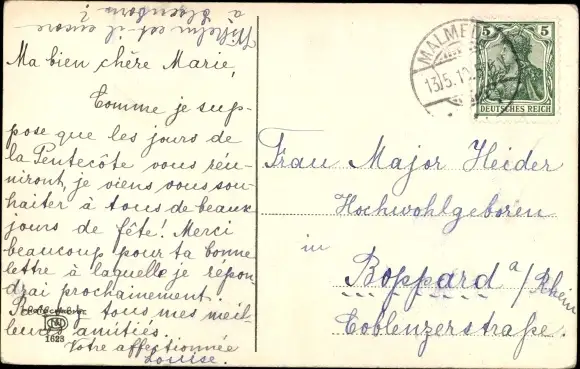 Wilhelm est-il encore
à Elsenborn ?
Ma bien chère Marie,
Comme je sup-
pose que les jours de
la Pentecôte vous réu-
niront, je viens vous sou-
haiter à tous de beaux
jours de fête! Merci
beaucoup pour ta bonne
lettre à laquelle je répon-
drai prochainement.
à tous mes meil-
leures amitiés.
Votre affectionnée
Louise.
1623
MALMEDY
13/5.10.
5 5
DEUTSCHES REICH
Frau Major Heider
Hochwohlgeboren
in
Boppard a/Rhein
Coblenzerstraße.